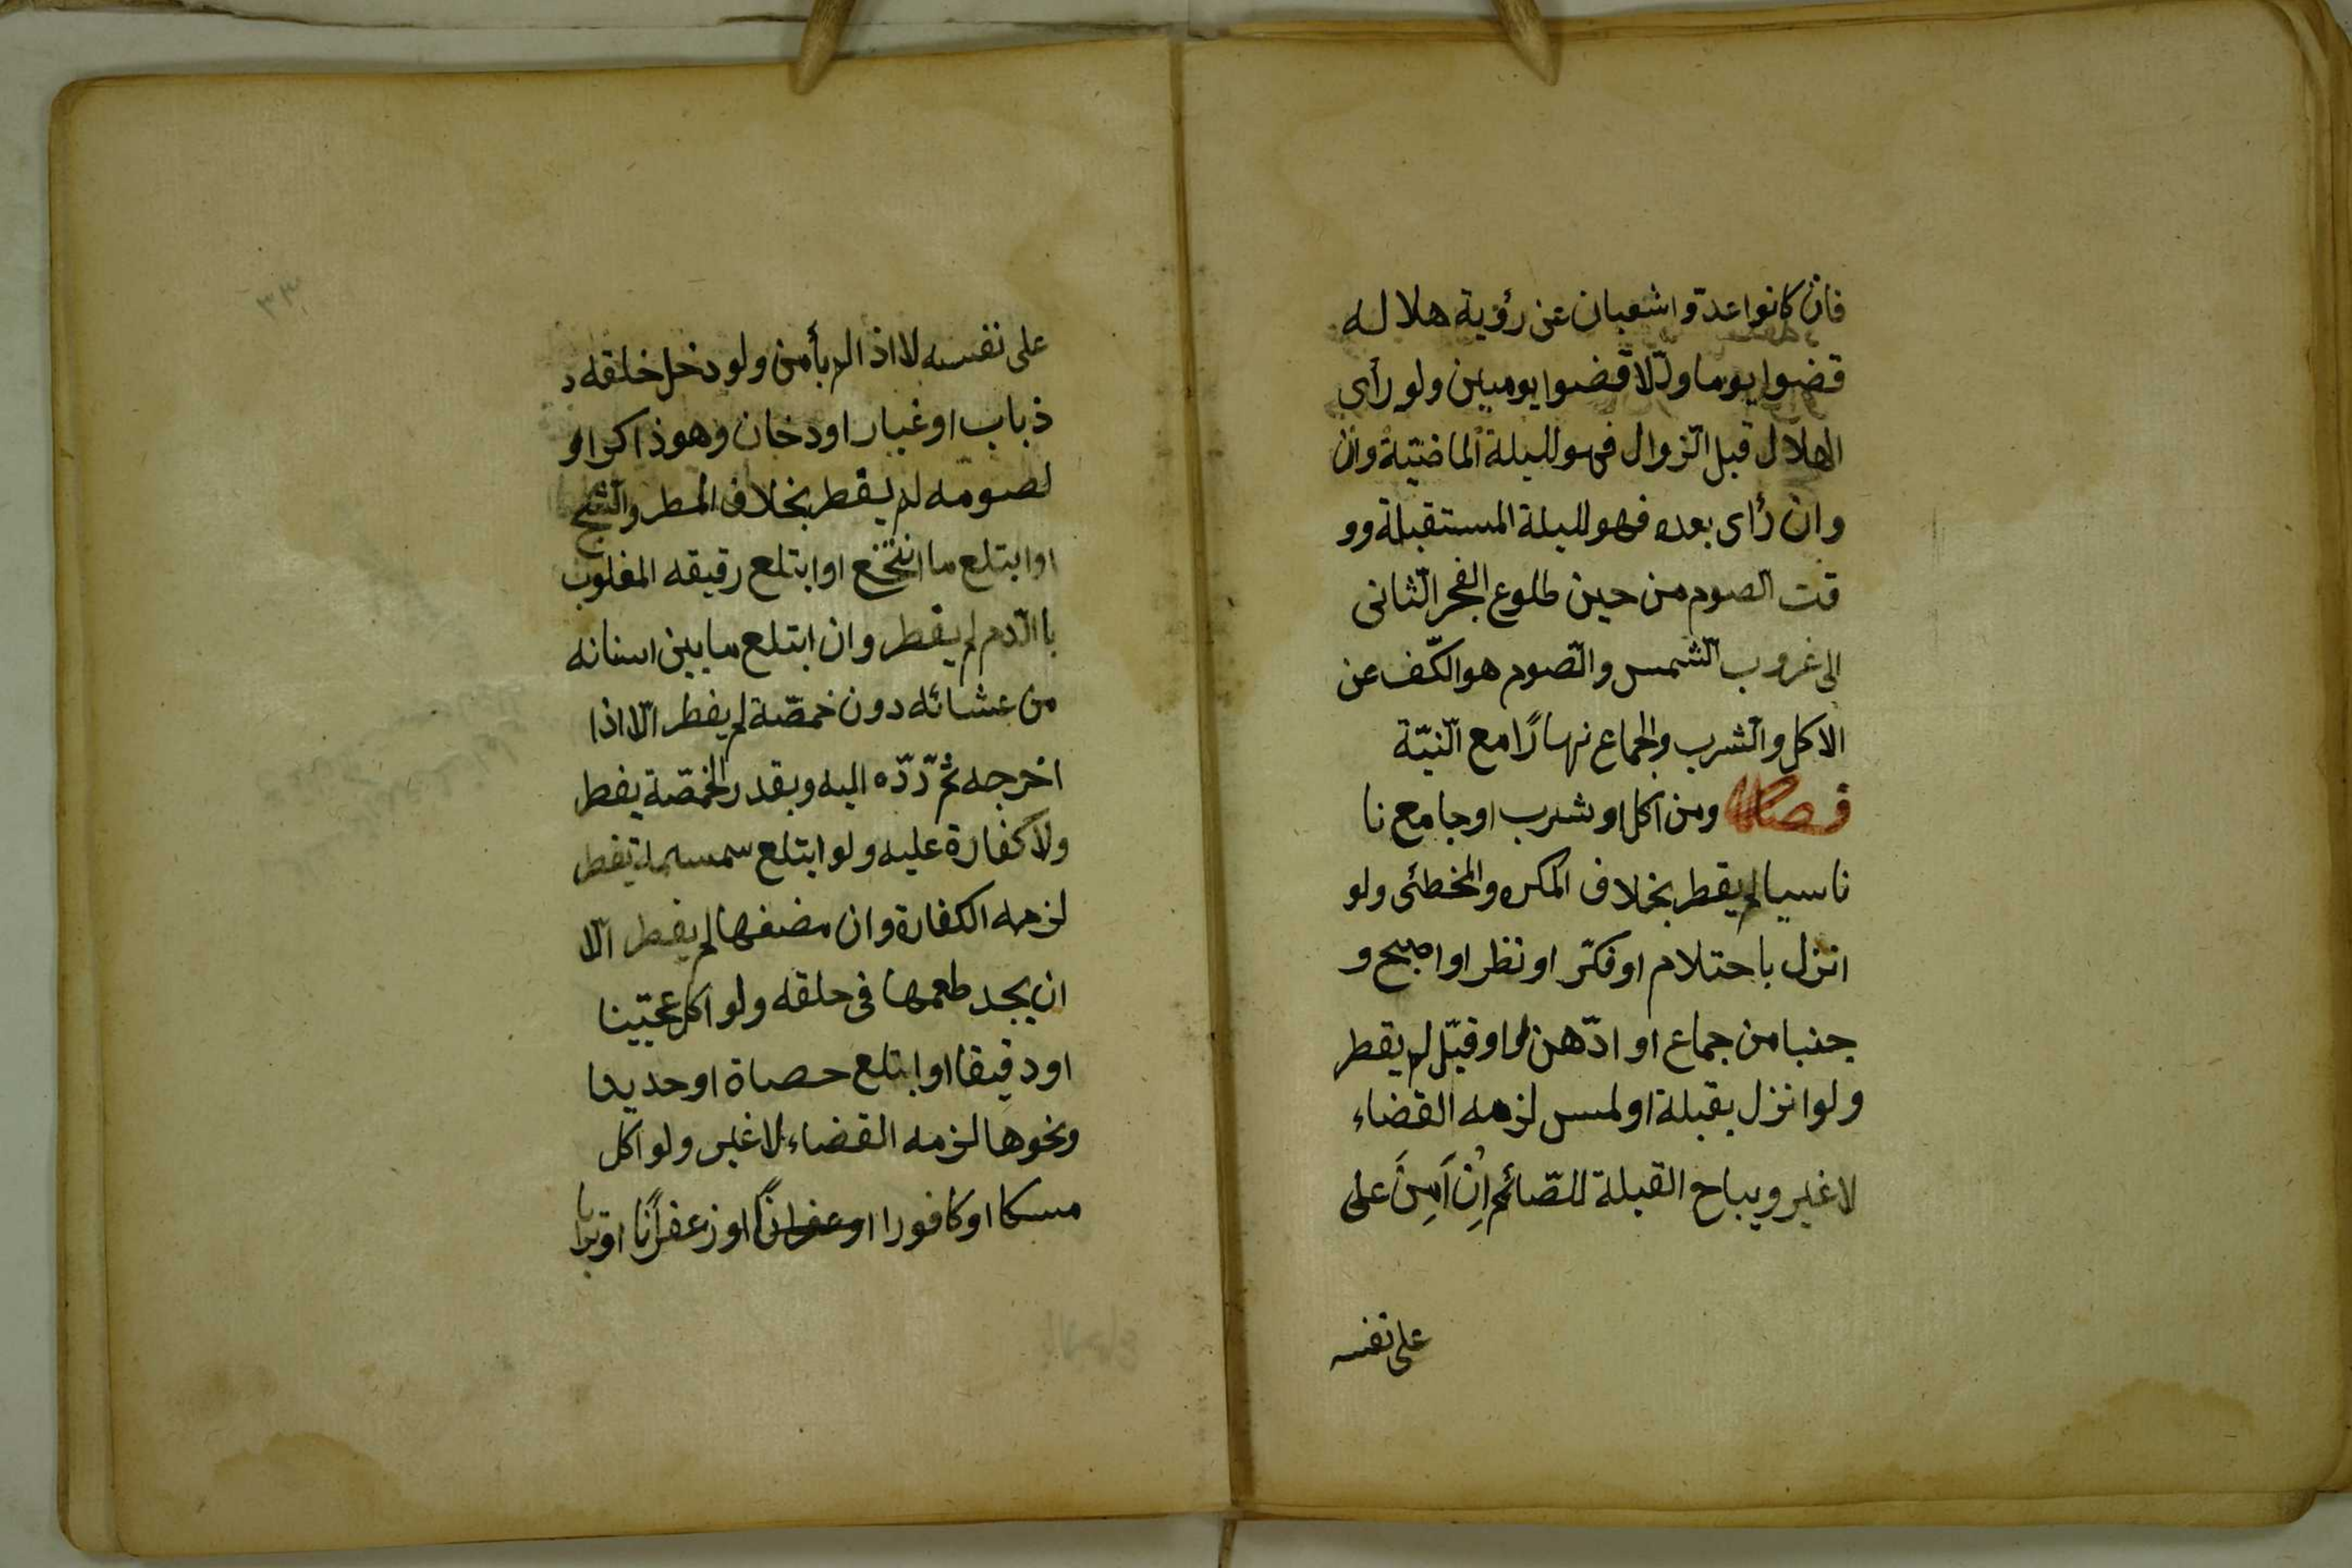 فان كانوا عدّوا شعبان عن رؤية هلاله
قضوا يوما والّا قضوا يومين ولو رأى
الهلال قبل الزّوال فهو لليلة الماضيّة وان
وان رأى بعده فهو لليلة المستقبلة وو
قت الصوم من حين طلوع الفجر الثّانى
الى غروب الشّمس والصّوم هو الكّف عن
الاكل والشّرب والجماع نهارًا مع النّيّة
فصل ومن اكل او شرب او جامع نا
ناسيا لم يفطر بخلاف المكره والمخطئ ولو
انزل باحتلام او فكّر او نظر او اصبح و
جنبا من جماع او ادّهن او قبّل لم يفطر
ولو انزل بقبلة او لمس لزمه القضاء
لا غير ويباح القبلة للصّائم اِن اَمِنَ على
على نفسه
٣٣
على نفسه لا اذا لم يأمن ولو دخل خلقه د
ذباب او غبار او دخان وهو ذاكر او
لصومه لم يفطر بخلاف المطر والثّلج
او ابتلع ما انتخع او ابتلع رقيقه المغلوب
باالدّم لم يفطر وان ابتلع ما بين اسنانه
من عشائه دون خمصّة لم يفطر الّا اذا
اخرجه ثمّ ردّه اليه وبقدر الخمصّة يفطر
ولا كفارة عليه ولو ابتلع سمسمة يفطر
لزمه الكفارة وان مضغها لم يفطر الّا
ان يجد طعمها فى حلقه ولو اكل عجينا
او دقيقا او ابتلع حصاة او حديدا
ونحوها لزمه القضاء لا غير ولو اكل
مسكا او كافورا او عفرانًا او زعفرانًا او ترابا